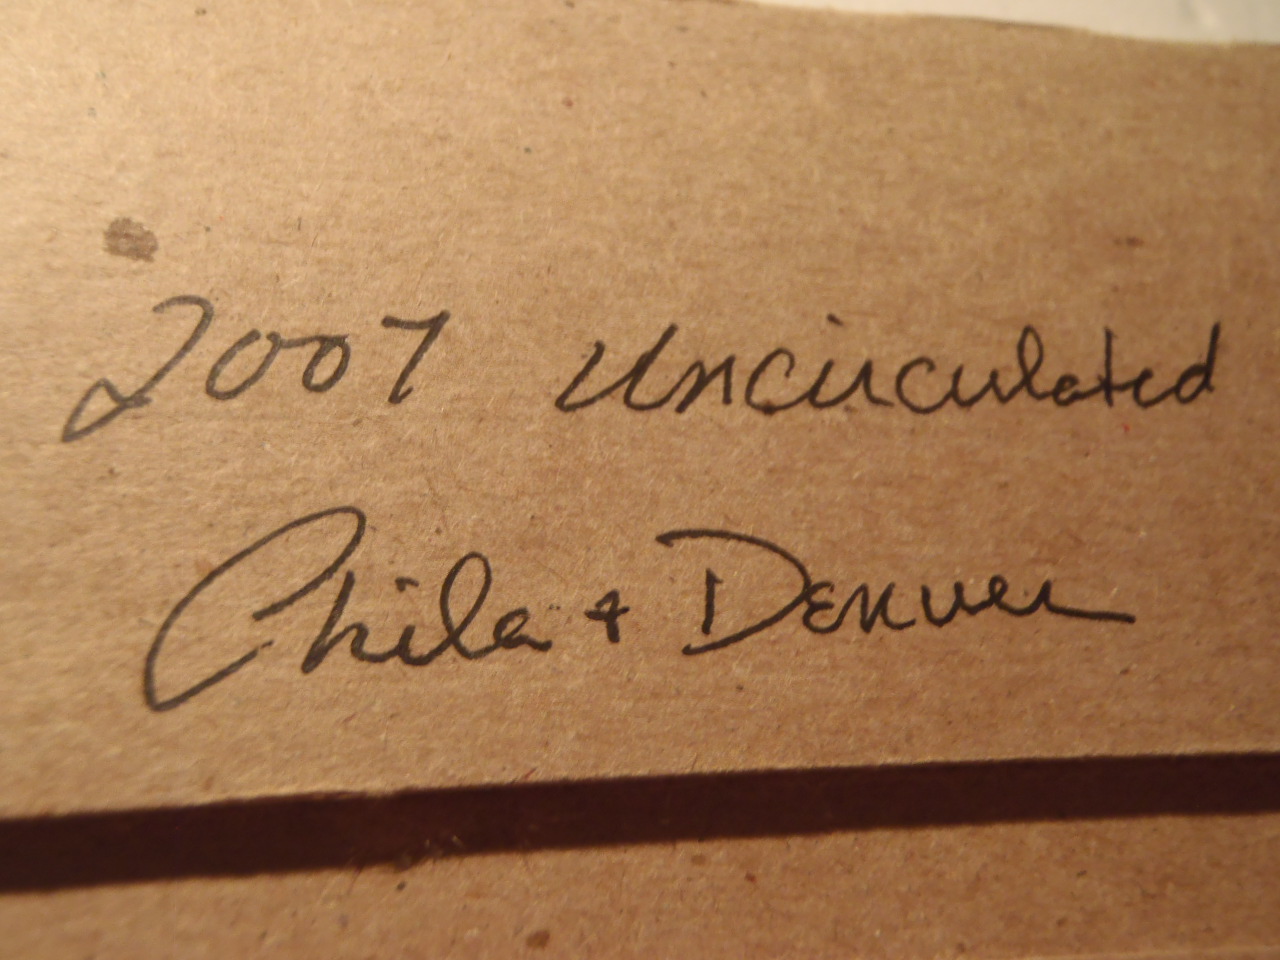 2007 Uncirculated
Phila + Denver